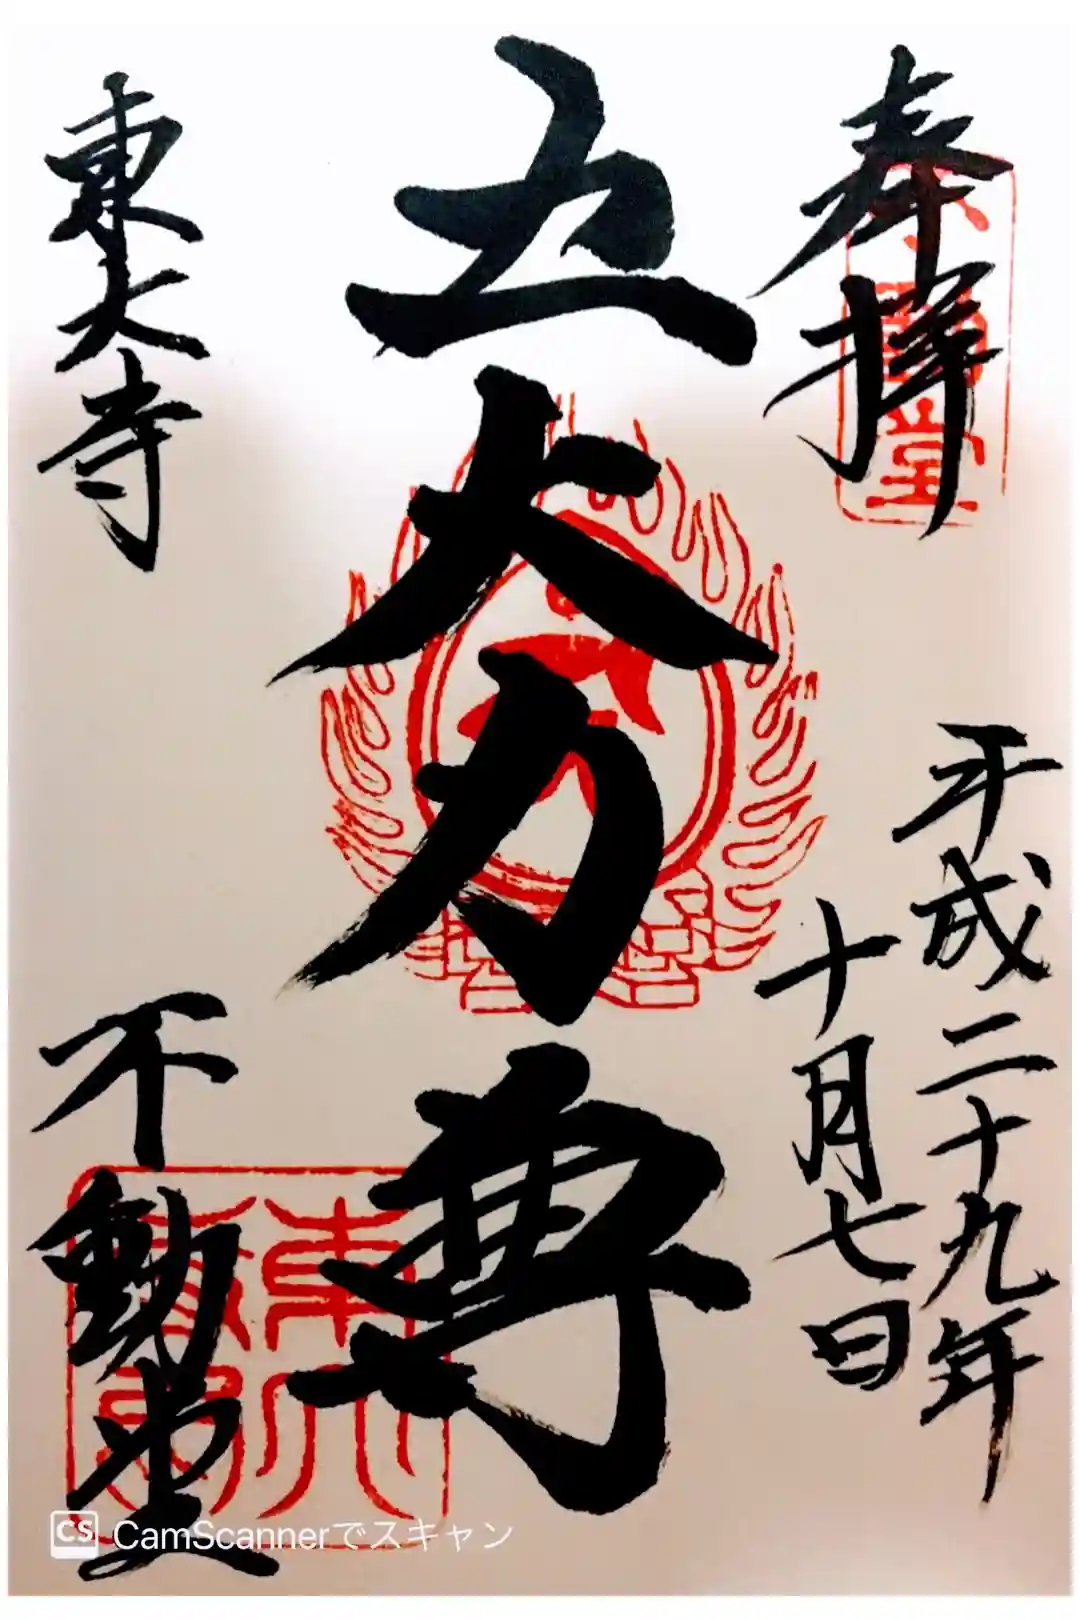 奉拝
平成二十九年
十月七日
五大力尊
東大寺
不動堂
CS CamScannerでスキャン